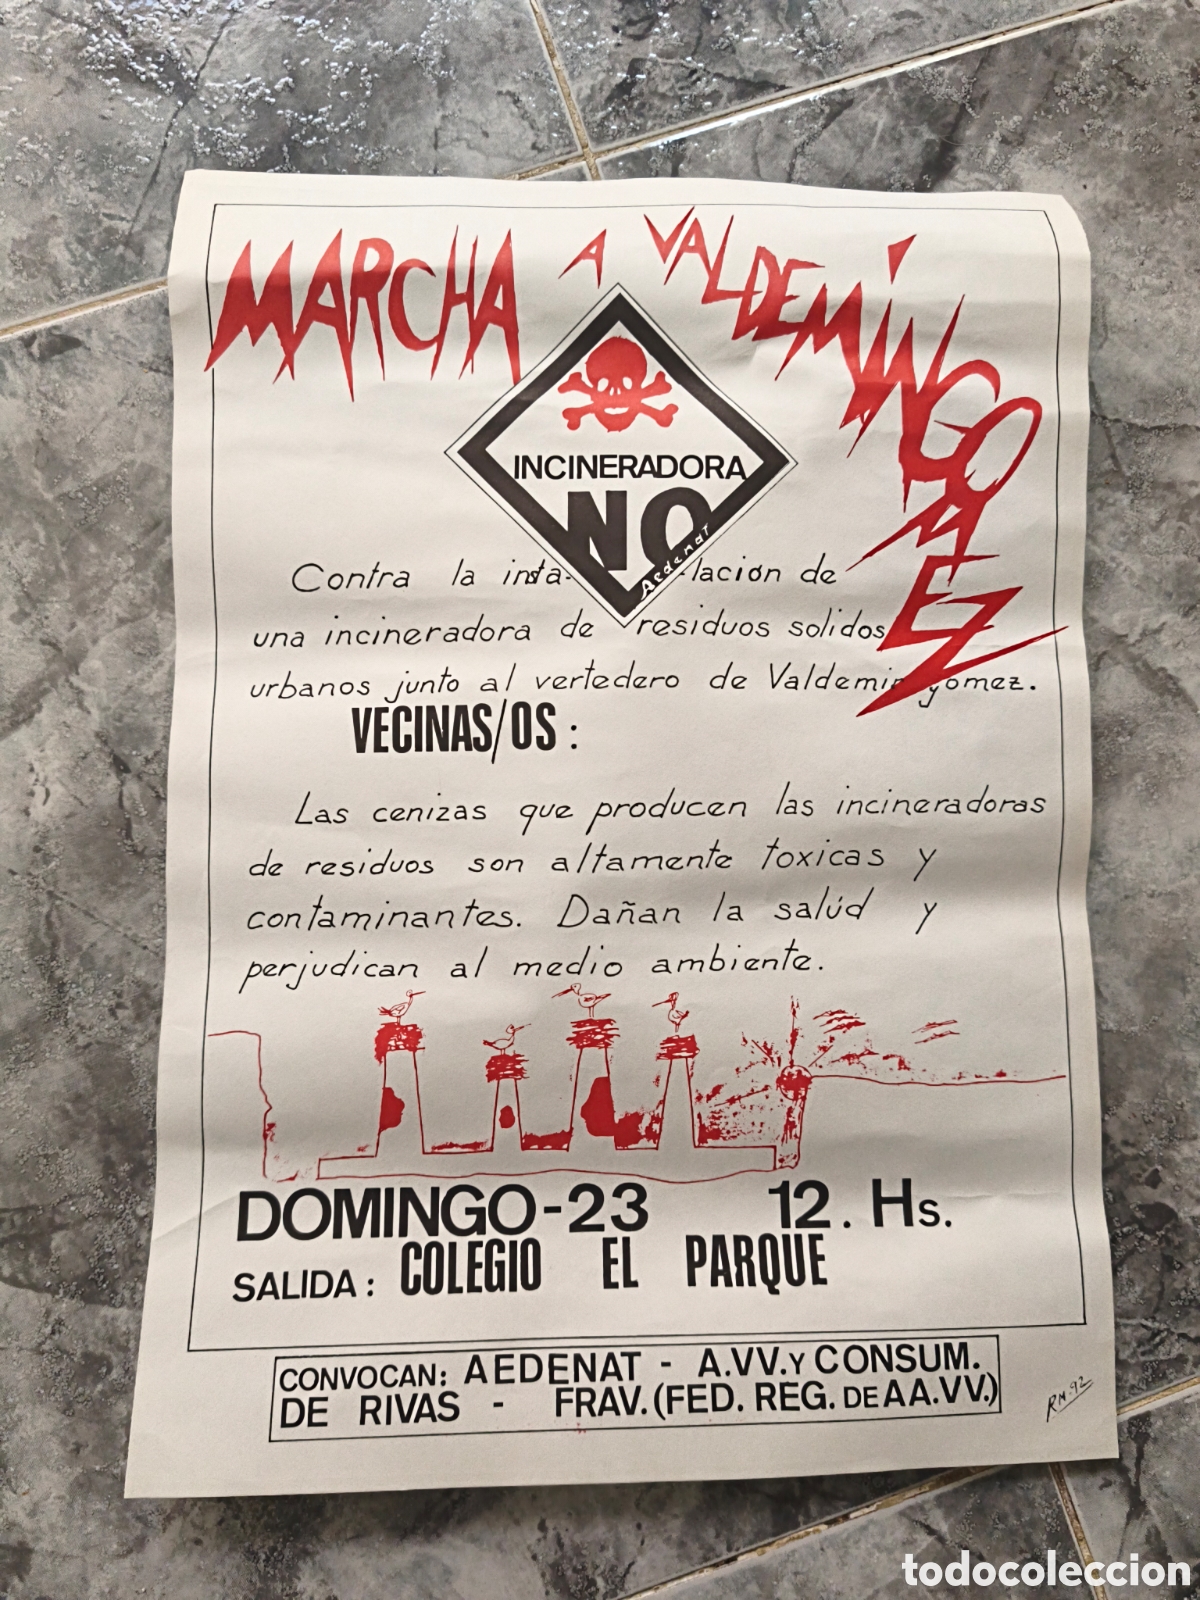 MARCHA A VALDEMINGOMEZ
INCINERADORA
NO
Aedenat
Contra la insta-lación de
una incineradora de residuos solidos
urbanos junto al vertedero de Valdemingomez.
VECINAS/OS :
Las cenizas que producen las incineradoras
de residuos son altamente toxicas y
contaminantes. Dañan la salúd y
perjudican al medio ambiente.
DOMINGO-23 12. Hs.
SALIDA: COLEGIO EL PARQUE
CONVOCAN: AEDENAT - A.VV. Y CONSUM.
DE RIVAS - FRAV. (FED. REG. DE AA.VV.)
RN.92
todocoleccion